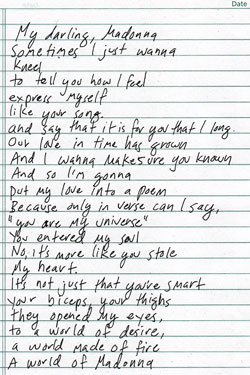 Date
My darling, Madonna
Sometimes I just wanna
Kneel
to tell you how I feel
express myself
like your song.
and say that it is for you that I long.
Our love in time has grown
And I wanna make sure you known
And so I'm gonna
put my love into a poem
Because only in verse can I say,
"you are my universe"
You entered my soul
No, it's more like you stole
My heart.
It's not just that you're smart
your biceps, your thighs
they opened my eyes,
to a world of desire,
a world made of fire
A world of Madonna